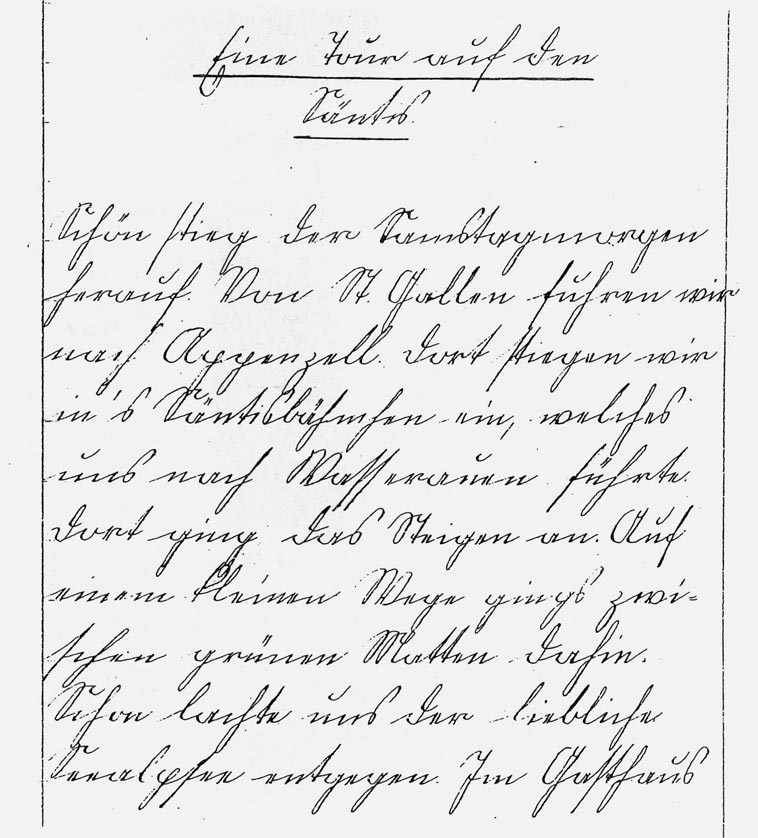 Eine Tour auf den
Säntis.
Schön stieg der Samstagmorgen
herauf. Von St. Gallen fuhren wir
nach Appenzell. Dort stiegen wir
in's Säntisbähnchen ein, welches
uns nach Wasserauen führte.
Dort ging das Steigen an. Auf
einem kleinen Wege gings zwi=
schen grünen Matten dahin.
Schon lachte uns der liebliche
Seealpsee entgegen. Im Gasthaus